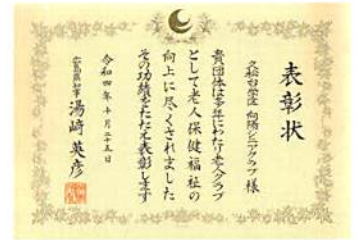 表彰状
久松台学区 向陽シニアクラブ 様
貴団体は多年にわたり老人クラブ
として老人保健福祉の
向上に尽くされました
その功績をたたえ表彰します
令和四年十月二十五日
広島県知事 湯﨑英彦